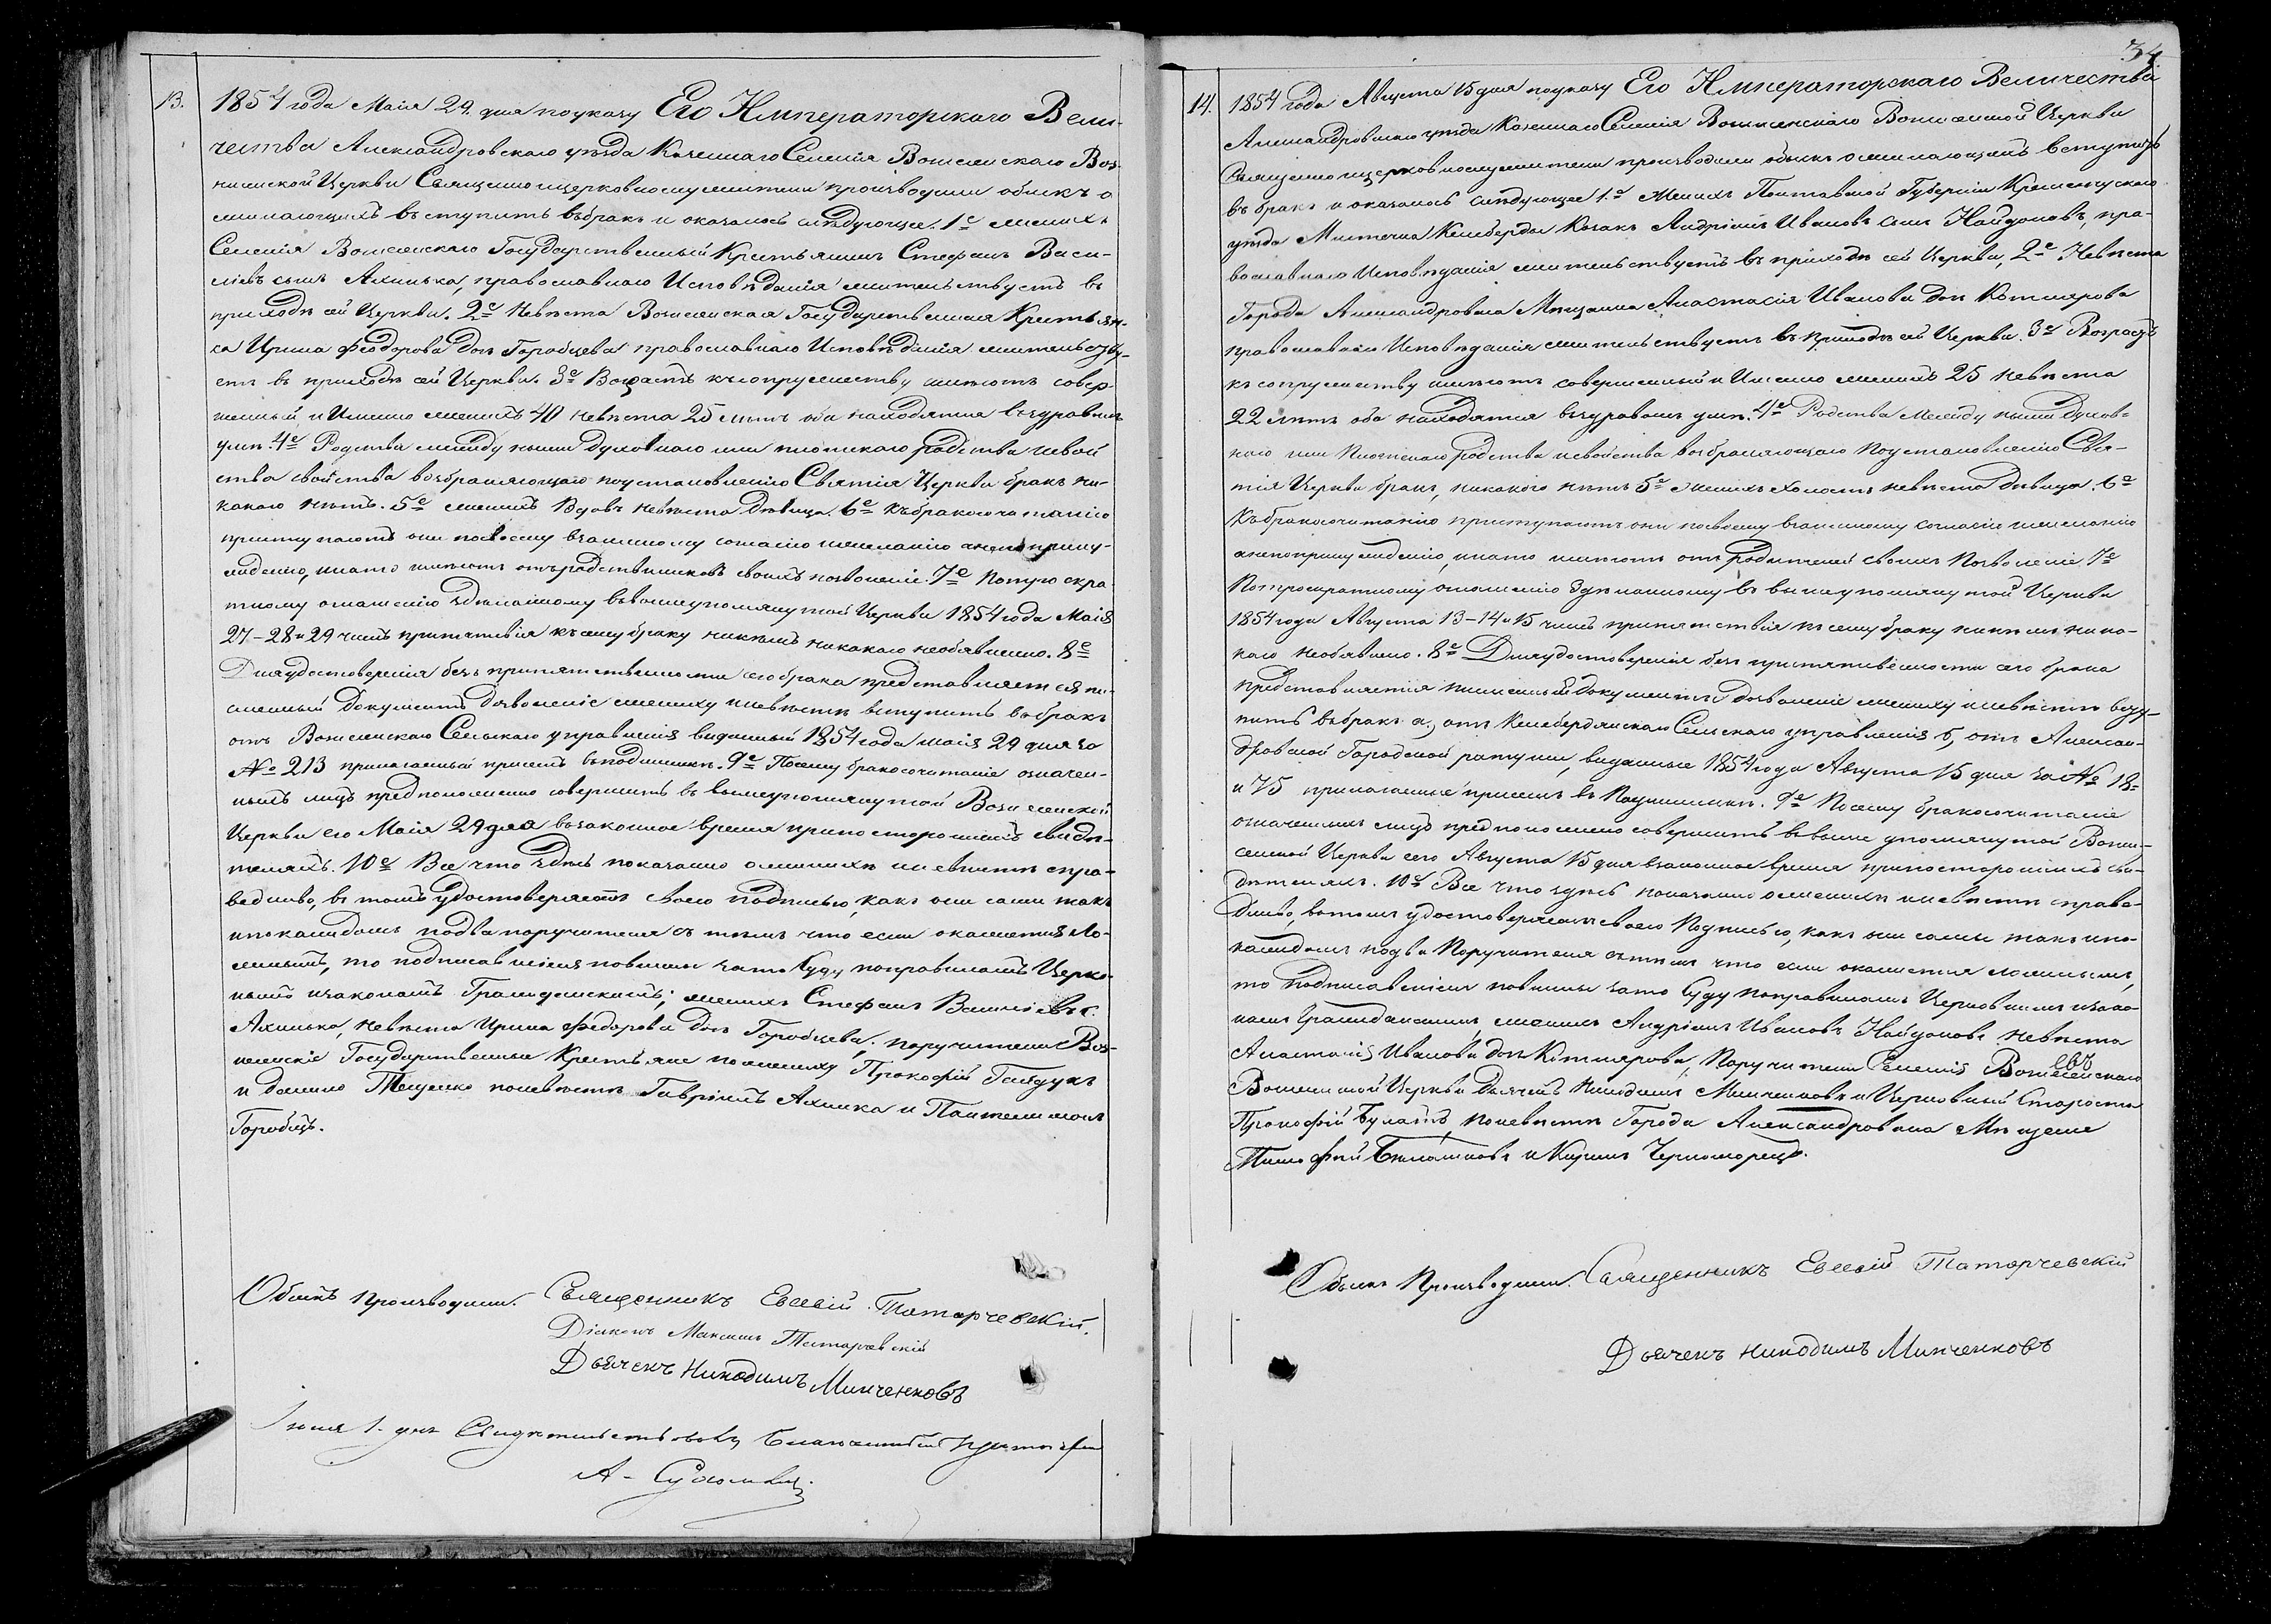 13.
1854 года Маія 29. дня по указу Его Императорскаго Вели-
чества Александровскаго уѣзда Казеннаго Селенія Вознесенскаго Воз-
несенской Церкви Священноицерковнослужители производили обыскъ о
желающихъ вступить въ бракъ и оказалось слѣдующее. 1е женихъ
Селенія Вознесенскаго Государственный Крестьянинъ Стефанъ Васи-
ліевъ сынъ Ахинька, православнаго Исповѣданія жительствуетъ въ
приходѣ сей Церкви. 2е Невѣста Вознесенская Государственная Крестьян-
ка Ирина Феодорова дочь Горобцева православнаго Исповѣданія жительству-
етъ въ приходѣ сей Церкви. 3е Возрастъ къ сопружеству имѣютъ совер-
шенный, и Именно женихъ 40 невѣста 25 лѣтъ оба находятся въ здравомъ
умѣ. 4е Родства между ними духовнаго или плотскаго родства и свой
ства свойства возбраняющаго по установленію Святыя Церкви бракъ ни-
какаго нѣтъ. 5е женихъ Вдовъ невѣста Дѣвица. 6е Къ бракосочетанію
приступаютъ они по своему взаимному согласію и желанію а не по прину-
жденію, и на то имѣютъ отъ родственниковъ своихъ позволеніе. 7е По трое кра
тному оглашенію здѣланному въ вышеупомянутой Церкви 1854 года Маія
27-28 и 29 чиселъ препятствія къ сему браку никѣмъ никакаго необявлено. 8е
Для удостовѣренія безпрепятственности сего брака представляется пи-
сменный Документъ дозволеніе жениху и невѣстѣ вступить въ бракъ
отъ Вознесенскаго Сельскаго управленія виданный 1854 года Маія 29 дня за
№ 213 прилагаемый присемъ въ подлинникѣ. 9е Посему бракосочетаніе означен-
ныхъ лицъ предположено совершить въ вышеупомянутой Вознесенской
Церкви сего Маія 29 дня въ законное время при постороннихъ свидѣ-
теляхъ. 10е Все что здѣсь показано о женихѣ и невѣстѣ спра-
ведливо, въ томъ удостовѣряютъ своею подписью, какъ они сами такъ
и по каждомъ по два поручителя съ тѣмъ что если окажется ло-
жнымъ, то подписавшіеся повинны за то Суду по правиламъ Церко-
внымъ и законамъ Гражданскимъ; женихъ Стефанъ Василіевъ с.
Ахинька, невѣста Ирина Федорова дочь Горобцева; поручители Воз-
несенскіе Государственные Крестьяне по женихѣ Прокофій Гайдукъ
и Данило Тещенко по невѣстѣ Гавріилъ Ахинка и Пантелимонъ
Горобецъ.
Обыскъ Производили. Священникъ Евсевій Татарчевскій.
Діаконъ Максимъ Татарчевскій
Дьячекъ Никодимъ Минченковъ
Іюня 1. дня Свидѣтельствовалъ Благочинный
А-
34
14.
1854 года Августа 15 дня по указу Его Императорскаго Величества
Александровскаго уѣзда Казеннаго Селенія Вознесенскаго Вознесенской Церкви
Священноицерковнослужители производили обыскъ о желающихъ вступить
въ бракъ и оказалось слѣдующее 1.е Женихъ Полтавской Губерніи Кременчускаго
уѣзда Мистечка Келеберда Козакъ Андріанъ Ивановъ сынъ Найдоновъ, пра-
вославнаго Исповѣданія жительствуетъ въ приходѣ сей Церкви, 2е Невѣста
Города Александровска Мѣщанка Анастасія Иванова дочь Котлярова
православнаго Исповѣданія жительствуетъ въ приходѣ сей Церкви. 3е Возрастъ
къ сопружеству имѣютъ совершенный и Именно женихъ 25 невѣста
22 лѣтъ оба находятся въ здравомъ умѣ. 4е Родства Между ними Духов-
наго или Плотскаго родства и свойства возбраняющаго По установленію Свя-
тыя Церкви бракъ, никакого нѣтъ 5е Женихъ холостъ невѣста дѣвица. 6е
Къ бракосочетанію приступаютъ они по своему взаимному согласію и желанію
а не по принужденію, и на то имѣютъ отъ родителей своихъ Позволеніе. 7е
По троекратному оглашенію Здѣланному въ вышеупомянутой Церкви
1854 года Августа 13-14 и 15 чиселъ препятствія къ сему браку никѣмъ ника-
каго необявлено. 8е Для удостовѣренія безпрепятственности сего брака
представляется писменный Документъ дозволеніе жениху и невѣстѣ всту-
пить въ бракъ а, отъ Келебердянскаго Сельскаго управленія б, отъ Алексан-
дровской Городской ратуши, виданные 1854 года Августа 15 дня за № 18-
и 75 прилагаемые присемъ въ Подлинникѣ. 9е Посему бракосочетаніе
означенныхъ лицъ предположено совершить въ выше упомянутой Возне-
сенской Церкви сего Августа 15 дня въ законное время при постороннихъ сви-
дѣтеляхъ. 10е Все что здѣсь показано о женихѣ и невѣстѣ справе-
дливо, въ томъ удостовѣряютъ своею Подписью, какъ они сами такъ и по
каждомъ по два Поручителя съ тѣмъ что если окажется ложнымъ,
то Подписавшіеся повинны за то Суду по правиламъ Церковнымъ и зако-
намъ Гражданскимъ, женихъ Андріанъ Ивановъ Найдоновъ невѣста
Анастасія Иванова дочь Котлярова, Поручители Селенія Вознесенскаго
Вознесенской Церкви Дьячекъ Никодимъ Минченковъ и Церковный Староста
Прокофій Булатъ, по невѣстѣ Города Александровска Мѣщане
Тимофѣй и Черноморецъ.
Обыскъ Производили. Священникъ Евсевій Татарчевскій
Дьячекъ Никодимъ Минченковъ